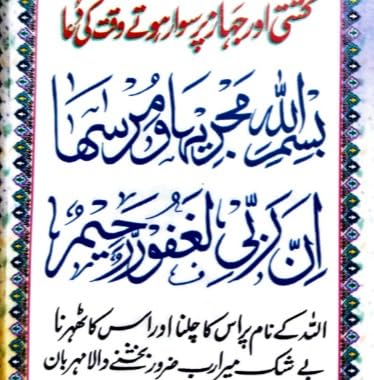 کشتی اور جہاز پر سوار ہوتے وقت کی دُعا
بِسْمِ اللهِ مَجْرٖىهَا وَمُرْسٰىهَا
اِنَّ رَبِّىْ لَغَفُوْرٌ رَّحِيْمٌ
اللہ کے نام پر اس کا چلنا اور اس کا ٹھہرنا
بے شک میرا رب ضرور بخشنے والا مہربان